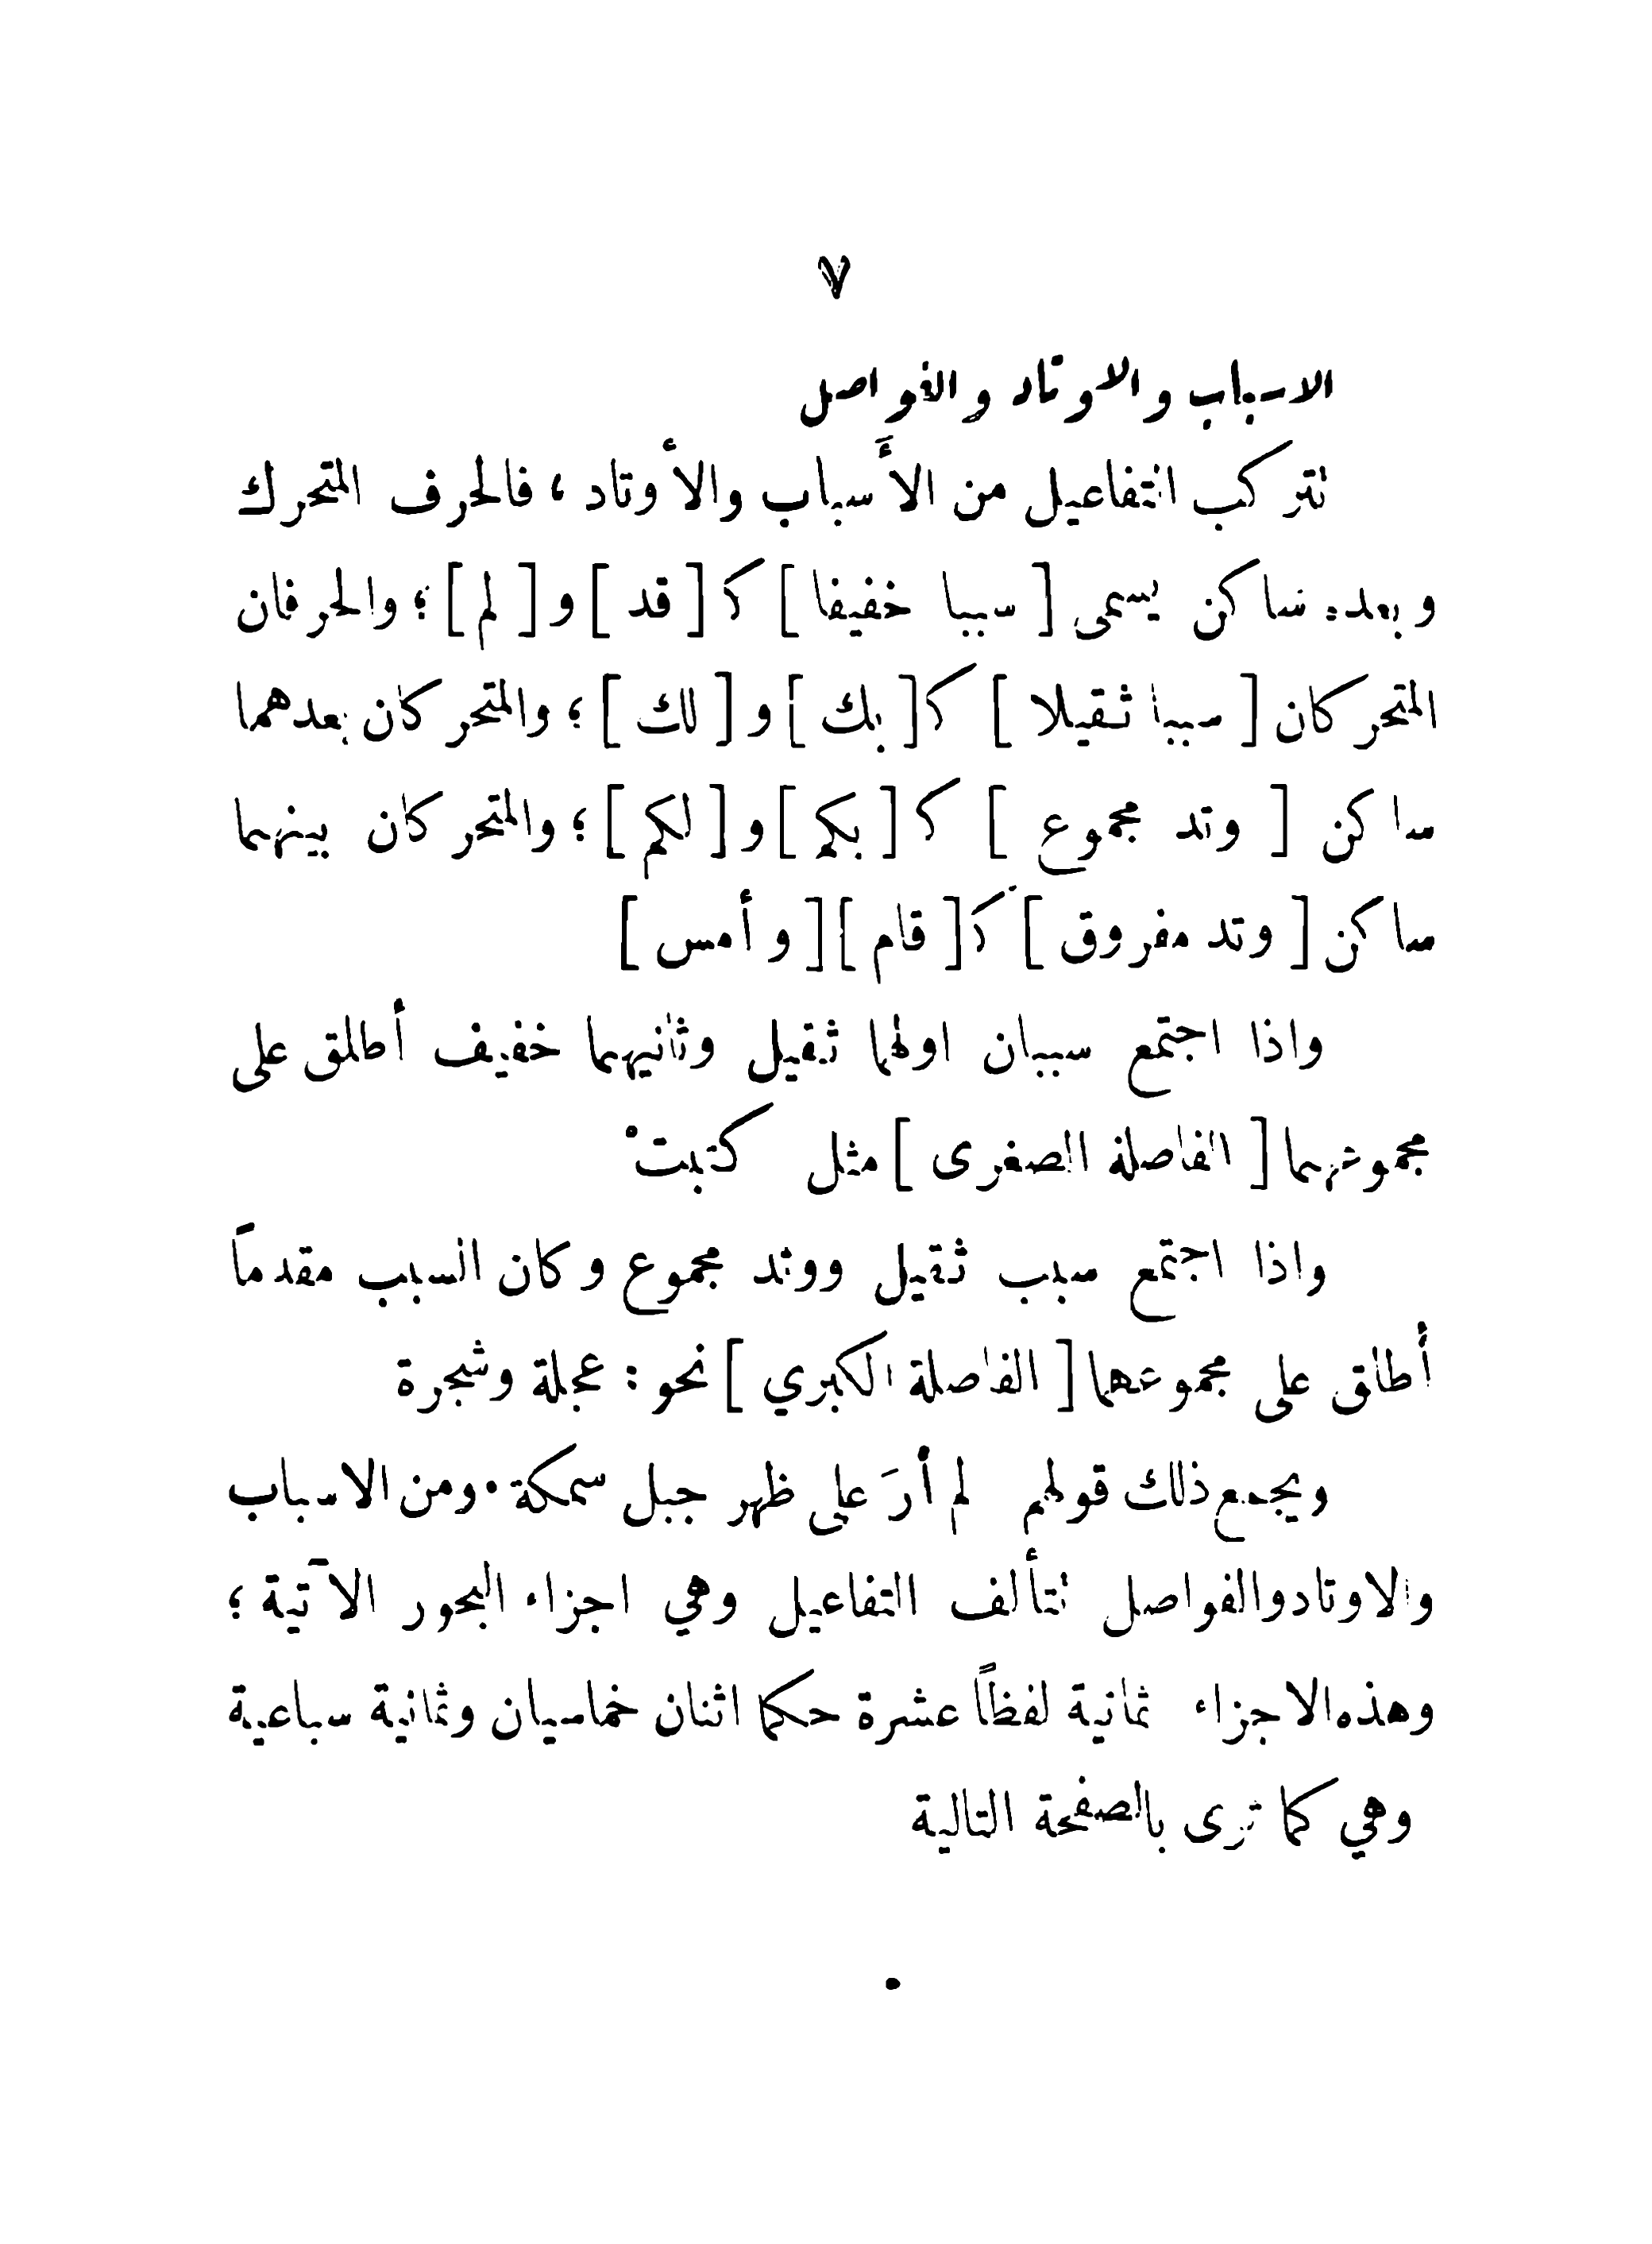 ٧
الاسباب والاوتاد والفواصل
تتركب التفاعيل من الأَسباب والأوتاد ، فالحرف المتحرك
وبعده ساكن يسمى [ سببا خفيفا ] كـ [ قد ] و [ لم ] ؛ والحرفان
المتحركان [ سببا ثقيلا ] كـ [ بك ] و [ لك ] ؛ والمتحركان بعدهما
ساكن [ وتد مجموع ] كـ [ بكم ] و [ لكم ] ؛ والمتحركان بينهما
ساكن [ وتد مفروق ] كـ [ قام ] [ وأمس ]
واذا اجتمع سببان اولهما ثقيل وثانيهما خفيف أطلق على
مجموعهما [ الفاصلة الصغرى ] مثل كتبتْ
واذا اجتمع سبب ثقيل ووتد مجموع وكان السبب مقدماً
أطلق على مجموعهما [ الفاصلة الكبري ] نحو : عجلة وشجرة
ويجمع ذلك قولهم لم أرَ على ظهر جبل سمكة . ومن الاسباب
والاوتاد والفواصل تتألف التفاعيل وهي اجزاء البحور الآتية ؛
وهذه الاجزاء ثمانية لفظاً عشرة حكما اثنان خماسيان وثمانية سباعية
وهي كما ترى بالصفحة التالية